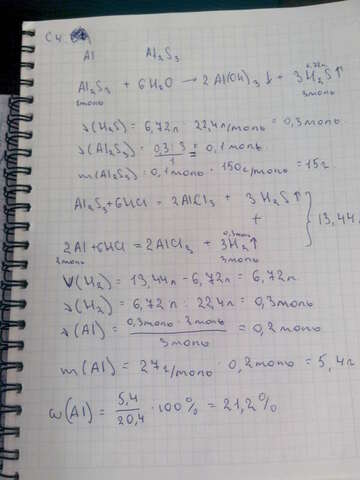 C4.
Al Al₂S₃
6,72л
Al₂S₃ + 6H₂O → 2Al(OH)₃↓ + 3H₂S↑
3моль
ν(H₂S) = 6,72л : 22,4л/моль = 0,3моль.
ν(Al₂S₃) = 0,3 : 3 / 1 = 0,1моль
m(Al₂S₃) = 0,1моль · 150г/моль = 15г.
Al₂S₃ + 6HCl = 2AlCl₃ + 3H₂S↑
+ } 13,44
0,3моль
2Al + 6HCl = 2AlCl₃ + 3H₂↑
2моль 3моль
V(H₂) = 13,44л - 6,72л = 6,72л
ν(H₂) = 6,72л : 22,4л = 0,3моль
ν(Al) = 0,3моль · 2моль / 3моль = 0,2моль
m(Al) = 27г/моль · 0,2моль = 5,4г
ω(Al) = 5,4 / 20,4 · 100% = 21,2%